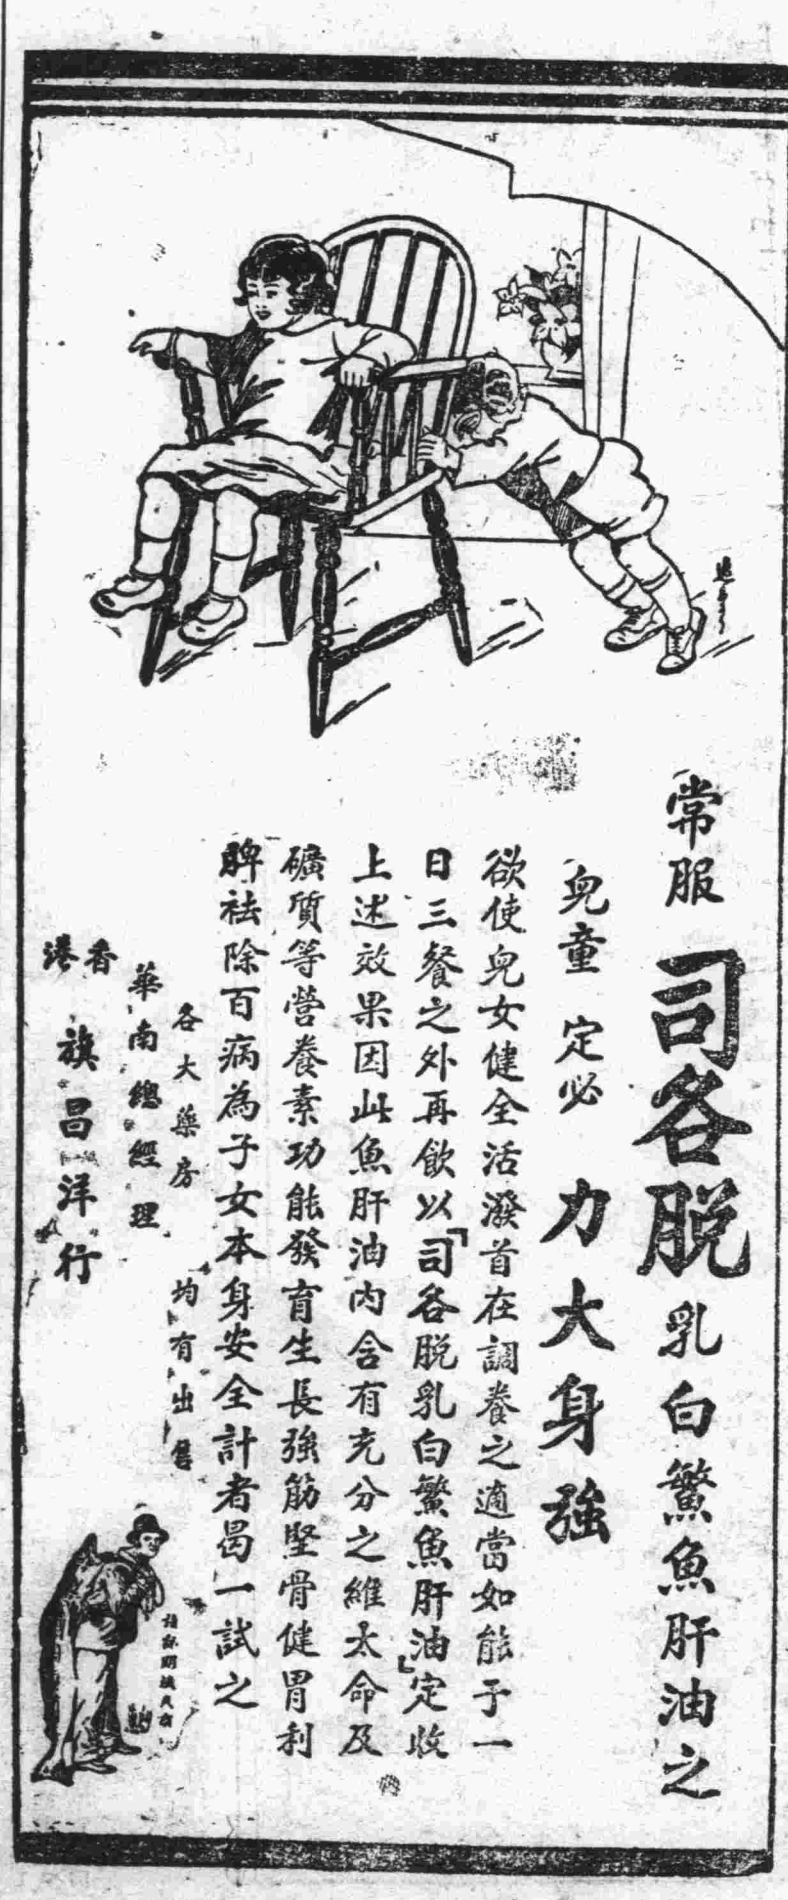 常服 司各脫 乳白鱉魚肝油之
兒童 定必 力大身強
欲使兒女健全活潑首在調養之適當如能于一
日三餐之外再飲以「司各脫乳白鱉魚肝油」定收
上述效果因此魚肝油内含有充分之維太命及
礦質等營養素功能發育生長強筋堅骨健胃利
脾袪除百病為子女本身安全計者曷一試之
各大藥房 均有出售
華南總經理
香港 旗昌洋行